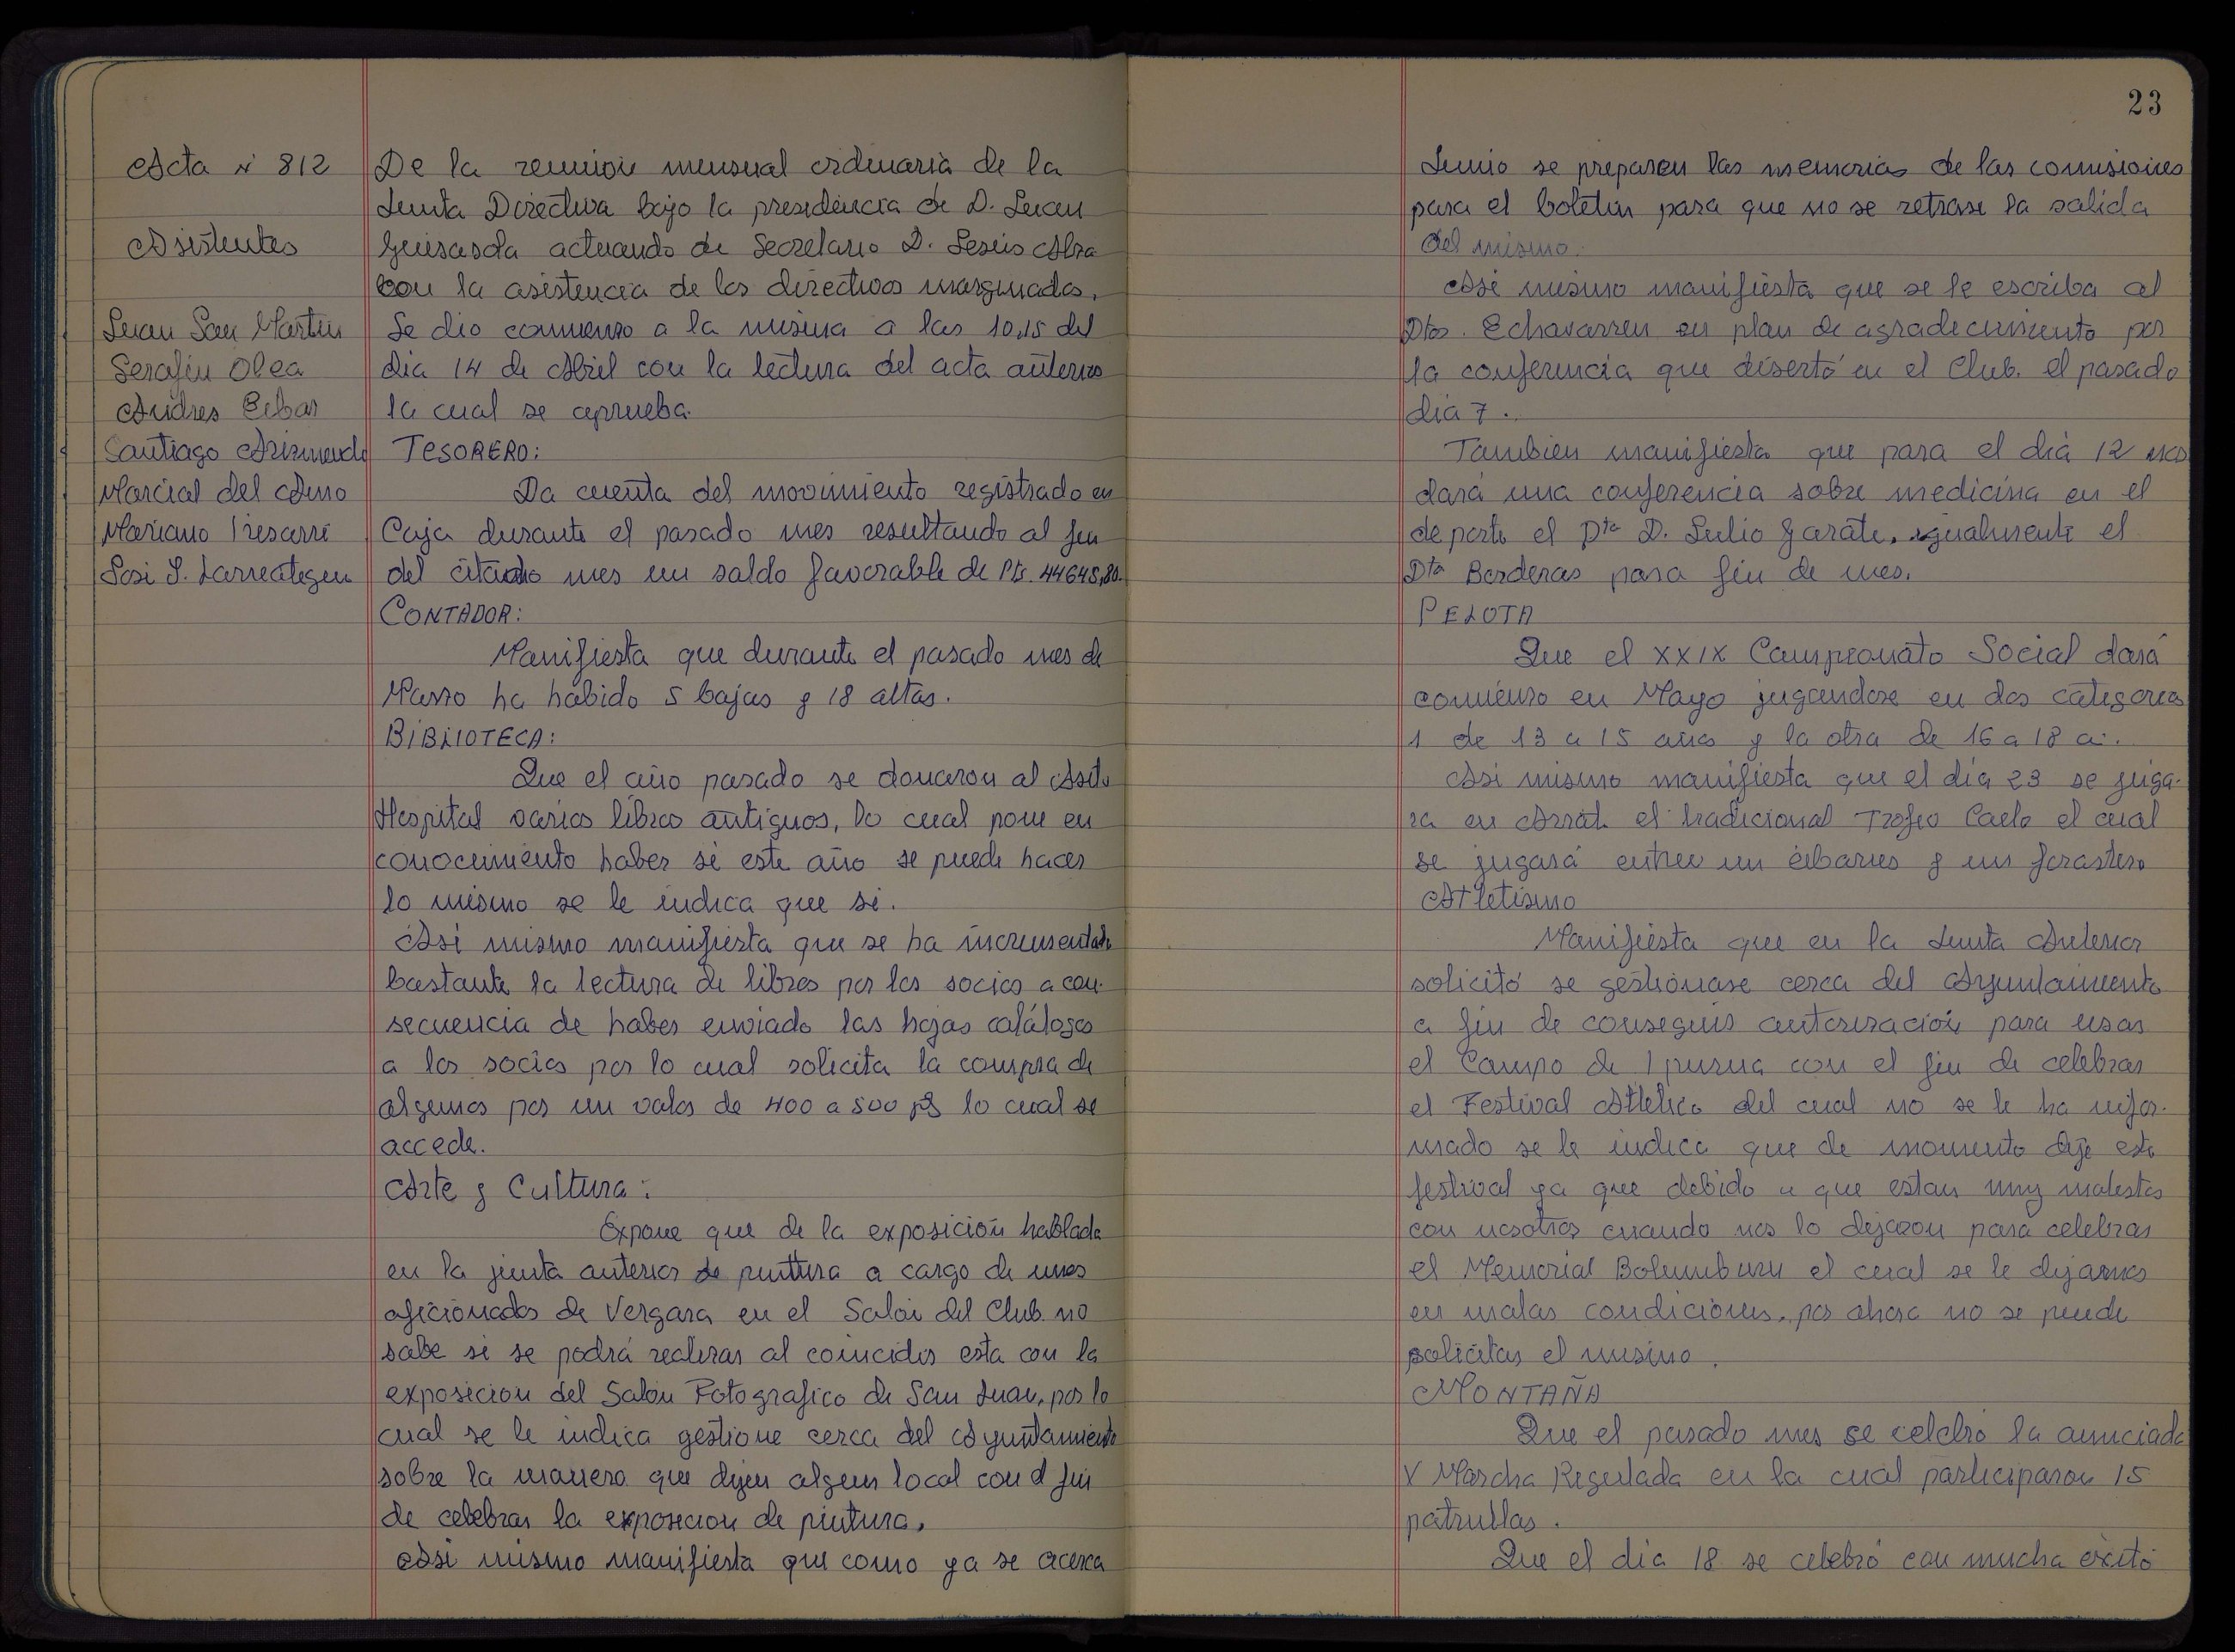 Acta N 812
Asistentes
Juan San Martin
Serafin Olea
Andres Eibar
Santiago Arizmendi
Marcial del Amo
Mariano Iresarri
Jose I. Larreategui
De la reunion mensual ordinaria de la
Junta Directiva bajo la presidencia de D. Juan
Guisasola actuando de Secretario D. Jesus Alza
con la asistencia de los directivos marginados.
Se dio comienzo a la misma a las 10,15 del
dia 14 de Abril con la lectura del acta anterior
la cual se aprueba.
TESORERO:
Da cuenta del movimiento registrado en
Caja durante el pasado mes resultando al fin
del citado mes un saldo favorable de Pts. 44645,80.
CONTADOR:
Manifiesta que durante el pasado mes de
Marzo ha habido 5 bajas y 18 altas.
BIBLIOTECA:
Que el año pasado se donaron al Asilo
Hospital varios libros antiguos, lo cual pone en
conocimiento haber si este año se puede hacer
lo mismo se le indica que si.
Asi mismo manifiesta que se ha incrementado
bastante la lectura de libros por los socios a con-
secuencia de haber enviado las hojas catálogos
a los socios por lo cual solicita la compra de
algunos por un valor de 400 a 500 pts lo cual se
accede.
Arte y Cultura:
Expone que de la exposición hablada
en la junta anterior de pintura a cargo de unos
aficionados de Vergara en el Salon del Club no
sabe si se podrá realizar al coincidir esta con la
exposicion del Salon Fotografico de San Juan, por lo
cual se le indica gestione cerca del Ayuntamiento
sobre la manera que dejen algun local con el fin
de celebrar la exposicion de pintura.
Asi mismo manifiesta que como ya se acerca
23
Junio se preparen las memorias de las comisiones
para el boletin para que no se retrase la salida
del mismo.
Asi mismo manifiesta que se le escriba al
Dtor. Echavarren en plan de agradecimiento por
la conferencia que disertó en el Club. el pasado
dia 7.
Tambien manifiesta que para el dia 12 nos
dará una conferencia sobre medicina en el
deporte el Dtor D. Julio Garate, igualmente el
Dtor Borderas para fin de mes.
PELOTA
Que el XXIX Campeonato Social dará
comienzo en Mayo jugandose en dos categorias
1 de 13 a 15 años y la otra de 16 a 18 a.
Asi mismo manifiesta que el dia 23 se juga-
ra en Arrate el tradicional Trofeo Caelo el cual
se jugará entre un eibarres y un forastero
Atletismo
Manifiesta que en la Junta Anterior
solicitó se gestionase cerca del Ayuntamiento
a fin de conseguir autorización para usar
el Campo de Ipurua con el fin de celebrar
el Festival Atletico del cual no se le ha infor-
mado se le indica que de momento deje este
festival ya que debido a que estan muy molestos
con nosotros cuando nos lo dejaron para celebrar
el Memorial Bolumburu el cual se le dejamos
en malas condiciones, por ahora no se puede
solicitar el mismo.
MONTAÑA
Que el pasado mes se celebró la anunciada
V Marcha Regulada en la cual participaron 15
patrullas.
Que el dia 18 se celebró con mucha exitó